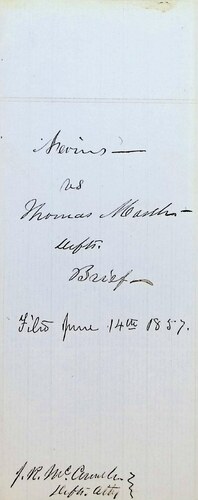 Nevins
vs
Thomas
Defts.
Brief
Filed June 14th 1857.
J. R. Mc
Defts. Atty